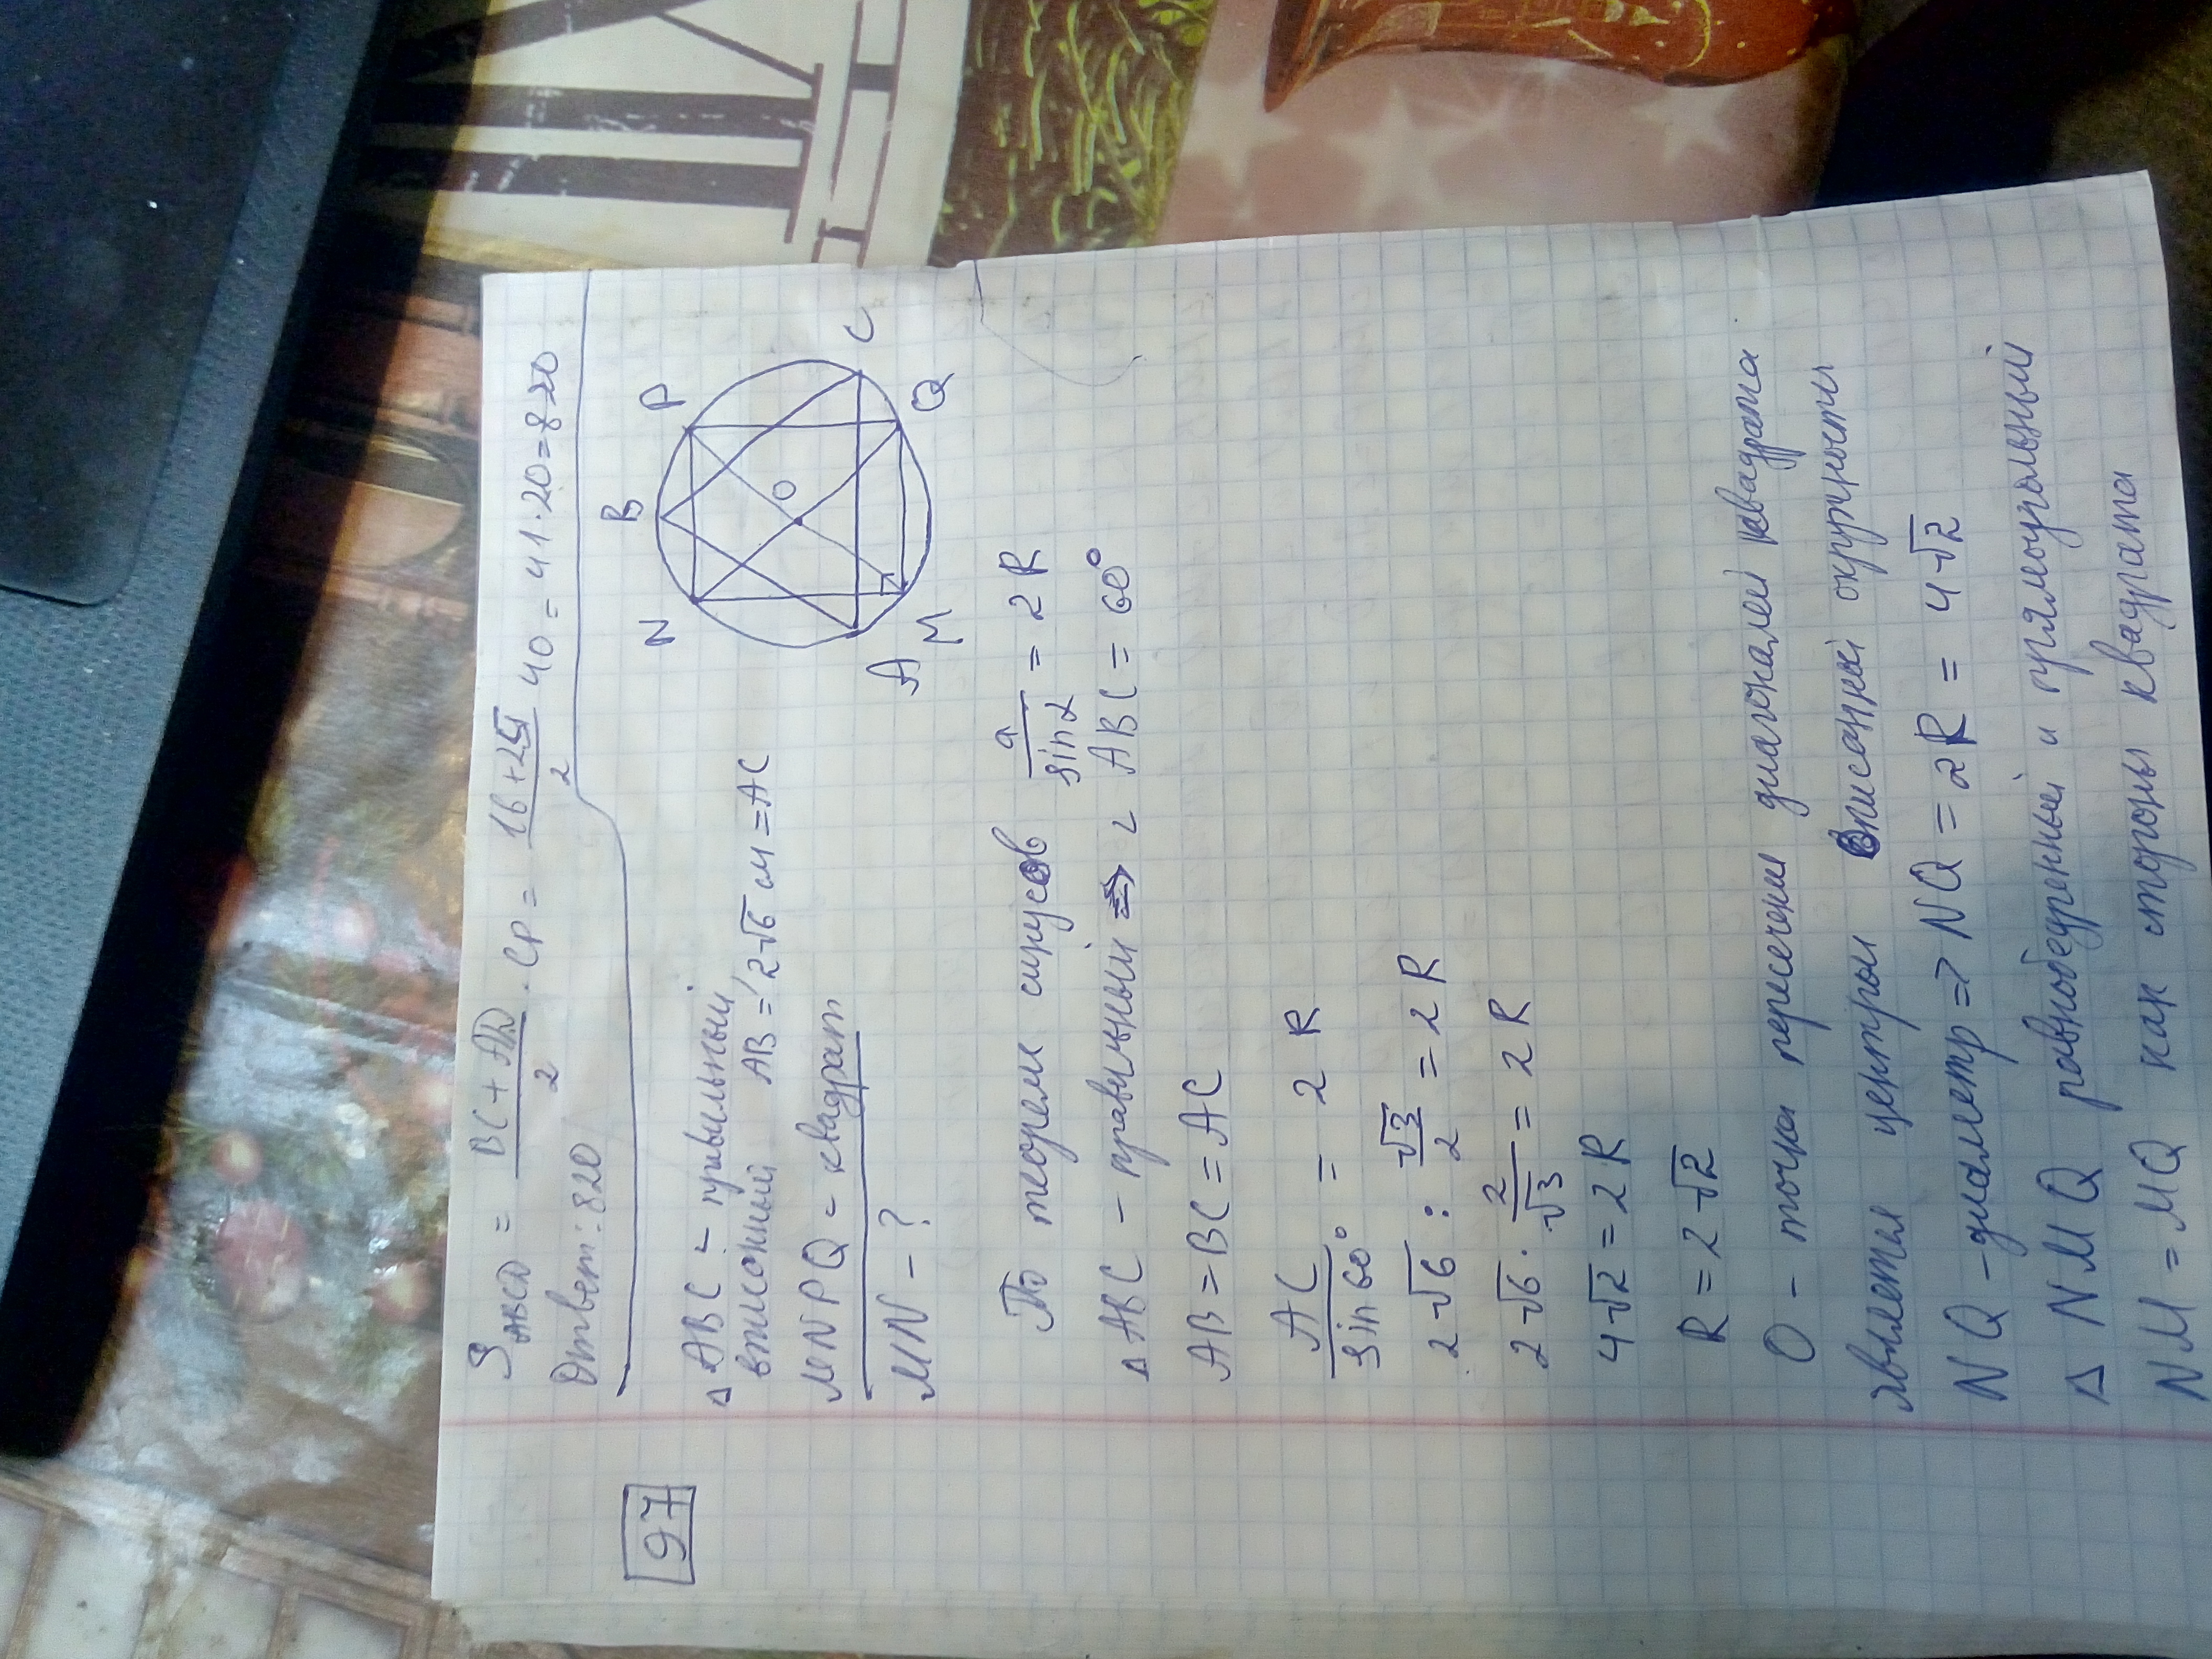 S ABCD = (BC + AD)/2 · CP = (16 + 25)/2 40 = 41·20 = 820
Ответ: 820
97
Δ ABC - правильный
вписанный AB = 2√6 см = AC
MNPQ - квадрат
MN - ?
N B P O A M Q C
По теореме синусов a/sin α = 2R
Δ ABC - правильный ⇒ ∠ ABC = 60°
AB = BC = AC
AC/sin 60° = 2 R
2√6 : √3/2 = 2R
2√6 · 2/√3 = 2R
4√2 = 2R
R = 2√2
O - точка пересечен диагоналей квадрата
является центром описанной окружности
NQ - диаметр ⇒ NQ = 2R = 4√2
Δ NMQ равнобедренный и прямоугольный
NM = MQ как стороны квадрата